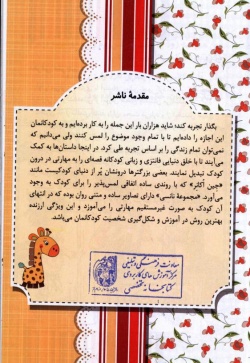 مقدمهٔ ناشر
بگذار تجربه کند؛ شاید هزاران بار این جمله را به کار برده‌ایم و به کودکانمان
این اجازه را داده‌ایم تا با تمام وجود موضوع را لمس کنند ولی می‌دانیم که
نمی‌توان تمام زندگی را بر اساس تجربه طی کرد. در اینجا داستان‌ها به کمک
می‌آیند تا با خلق دنیایی فانتزی و زبانی کودکانه قصه‌ای را به مهارتی در درون
کودک تبدیل نمایند. بعضی بزرگترها درونشان پر از دنیای کودکیست مانند
«چین آکثر» که با روندی ساده اتفاقی لمس‌پذیر را برای کودک به وجود
می‌آورد. «مجموعهٔ نانسی» دارای تصاویر ساده و متنی روان بوده که در انتهای
آن کودک به صورت غیرمستقیم مهارتی را می‌آموزد و این ویژگی ارزنده
بهترین روش در آموزش و شکل‌گیری شخصیت کودکانمان می‌باشد.
معاونت فرهنگی تبلیغی
مرکز آموزش‌های کاربردی
کتابخانه تخصصی